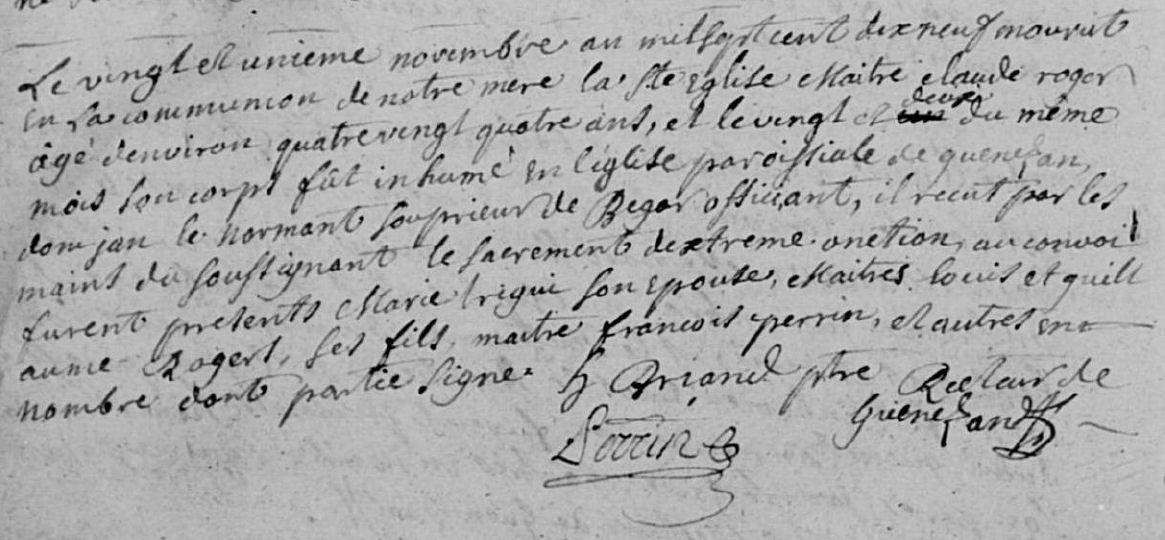 Le vingt et unieme novembre au mil sept cent dix neuf mourut
en la communion de notre mere la Ste Eglise Maitre claude roger
âgé d'environ quatre vingt quatre ans, et le vingt et deux du même
mois son corps fût inhumé en l'église paroissiale de quenezan,
dom jan le normant souprieur de Begar officiant, il recut par les
mains du soussignant le sacrement d'extreme onction, au convoi
furent presents Marie tregui son epouse, Maitres louis et guill
aume Rogers, ses fils, maitre francois perrin, et autres en
nombre dont partie signe. Briand ptre Recteur de
Guenezan
Perrin